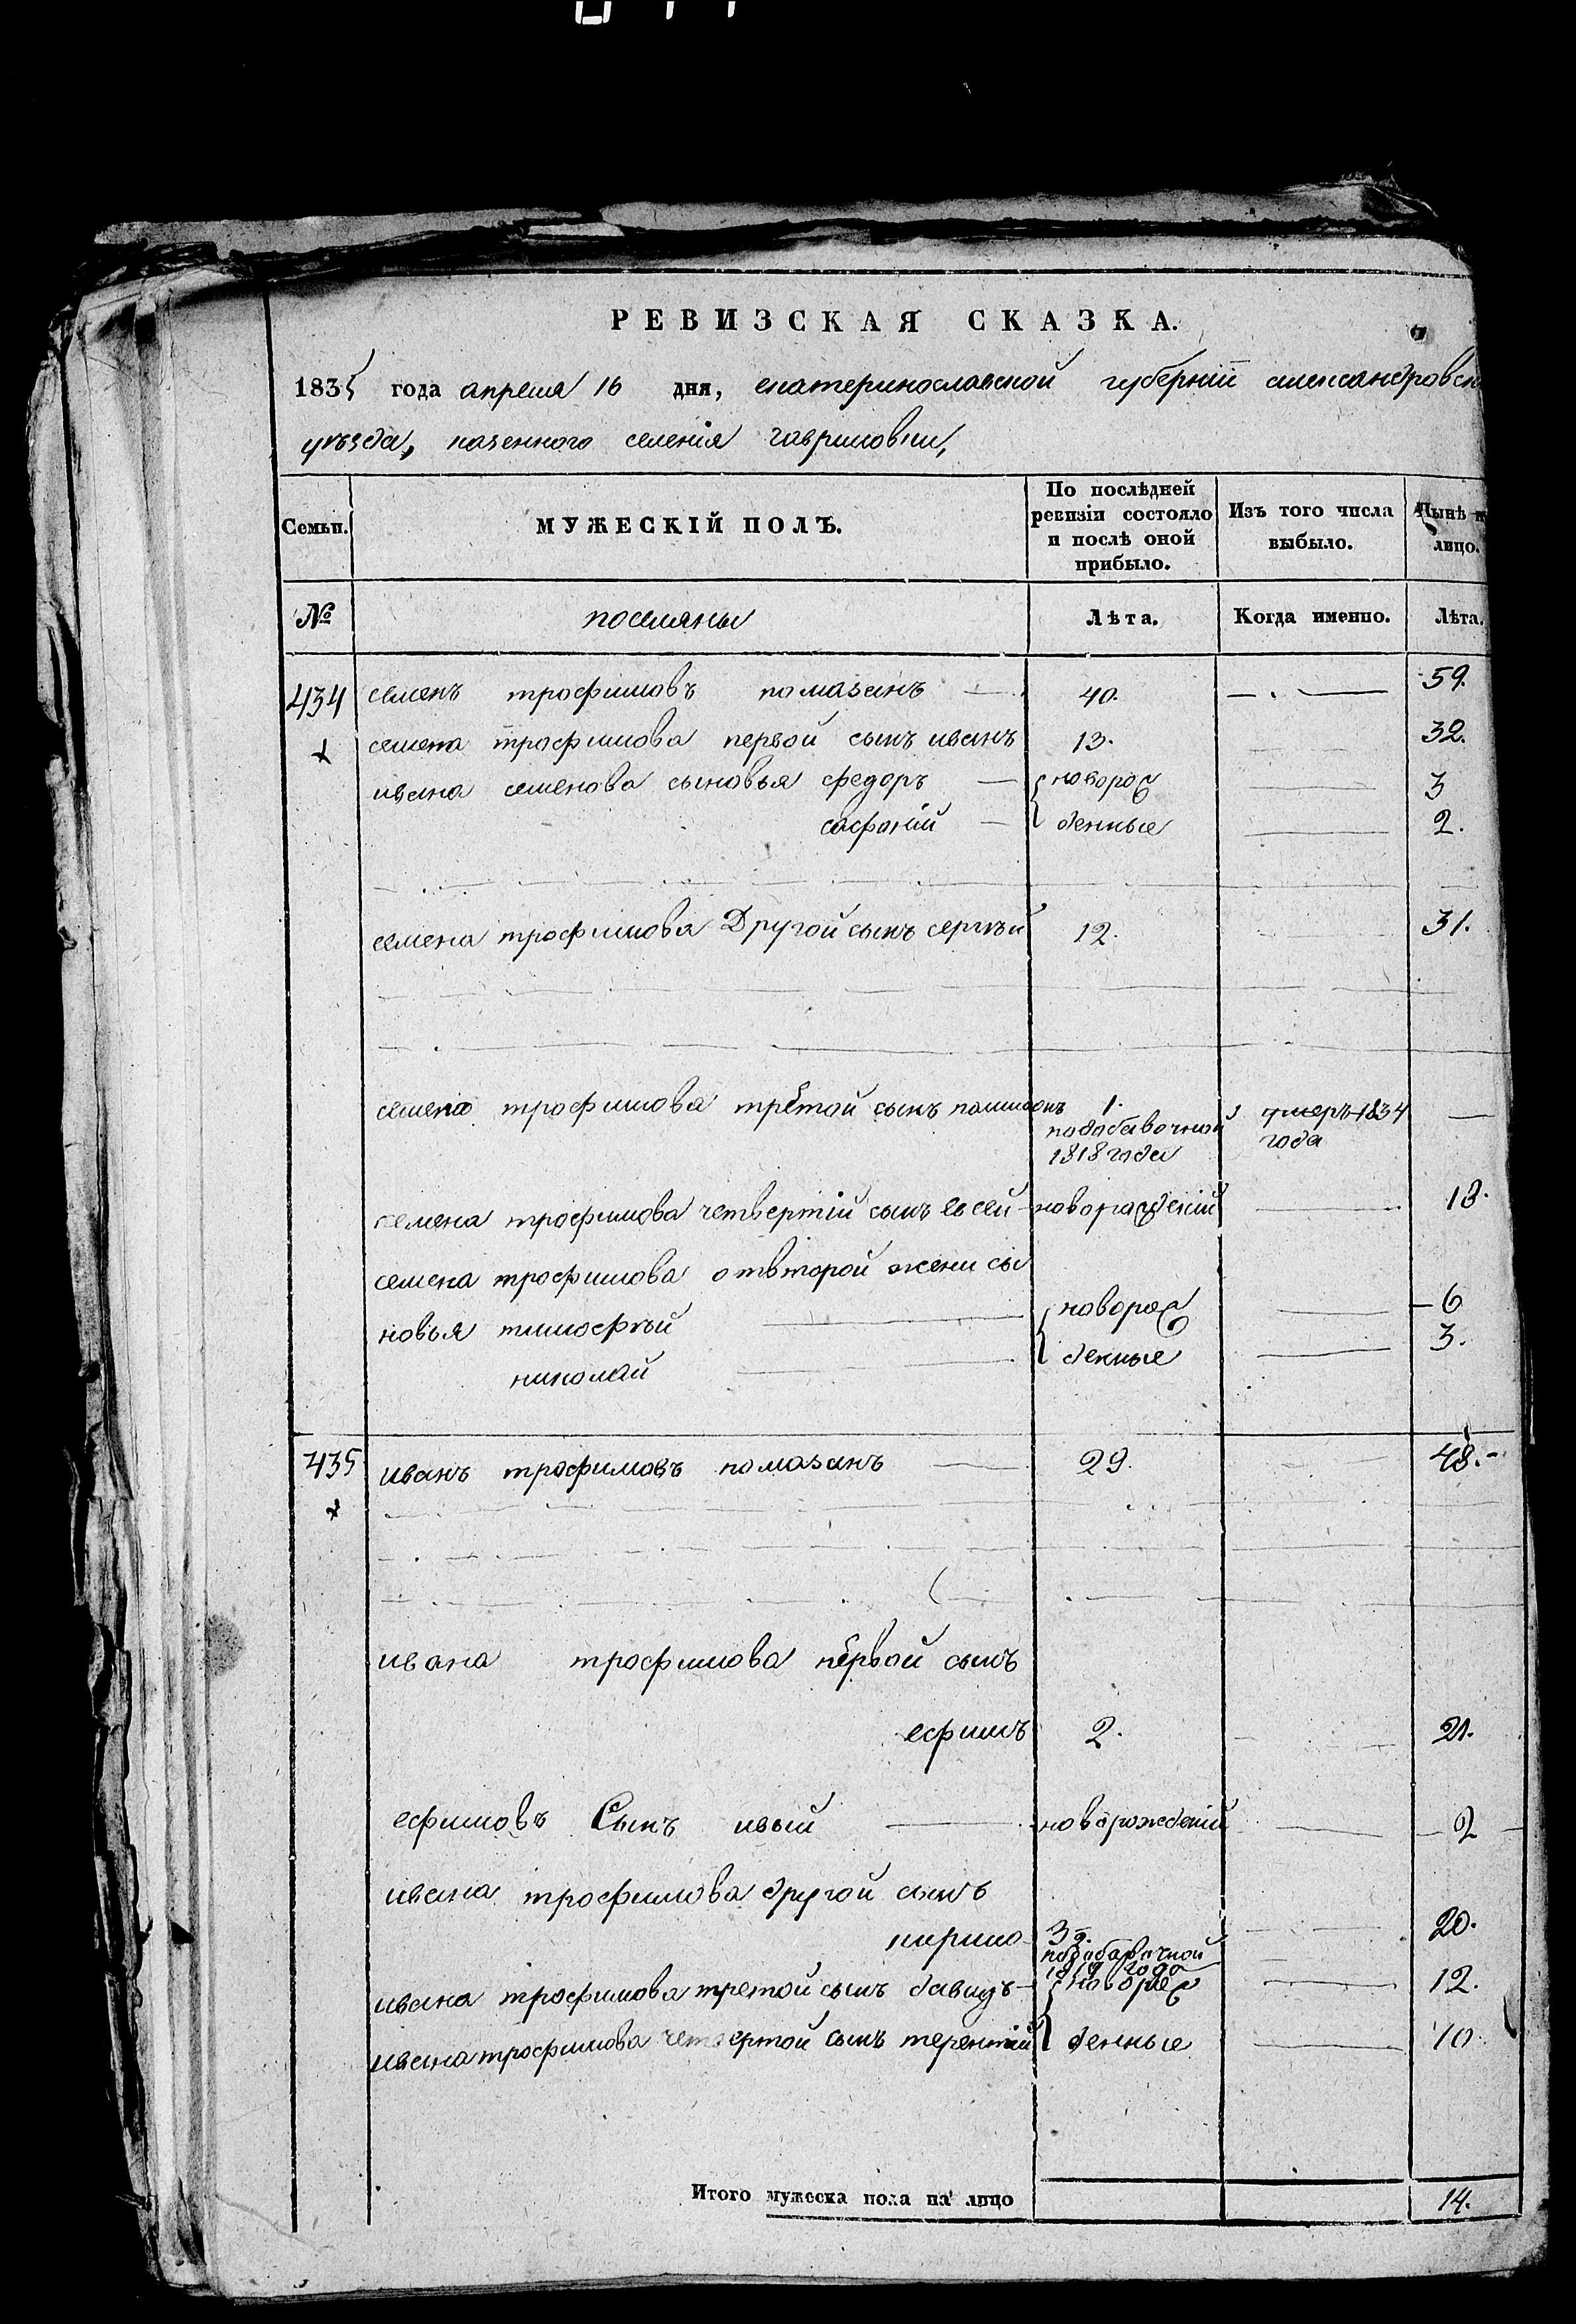 РЕВИЗСКАЯ СКАЗКА.
1835 года апреля 16 дня, екатеринославской губерніи александровск
уѣзда, казенного селенія гавриловки,
Семьи. МУЖЕСКІЙ ПОЛЪ. По послѣдней ревизіи состояло и послѣ оной прибыло. Изъ того числа выбыло. Нынѣ н лицо.
№ поселяны Лѣта. Когда именно. Лѣта.
434 семенъ трофимовъ помазанъ 40. 59.
семена трофимова первой сынъ иванъ 13. 32.
ивана семенова сыновья федоръ новорож 3
софоній денные 2.
семена трофимова Другой сынъ сергѣй 12. 31.
семена трофимова третой сынъ 1. умеръ 1834
подобавочной года
1818 года
семена трофимова четвертій сынъ евсей новорожденій 18.
семена трофимова отвторой жени сы
новья тимофѣй новорож 6
николай денные 3.
435 иванъ трофимовъ помазанъ 29. 48.
ивана трофимова первой сынъ
ефимъ 2. 21.
ефимовъ Сынъ новорожденій 2
ивана трофимова другой сынъ
кирило 20.
подобавочной
1819 года
ивана трофимова третой сынъ давидъ новорож 12.
ивана трофимова четвертой сынъ терентій денные 10
Итого мужеска пола на лицо 14.